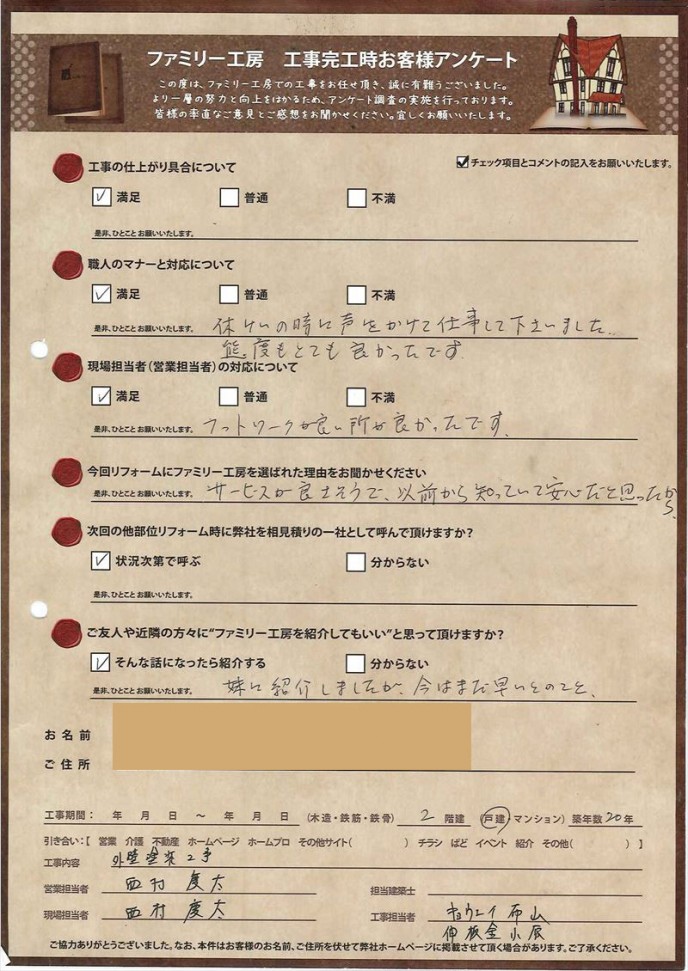 ファミリー工房 工事完工時お客様アンケート
この度は、ファミリー工房での工事をお任せ頂き、誠に有難うございました。
より一層の努力と向上をはかるため、アンケート調査の実施を行っております。
皆様の率直なご意見とご感想をお聞かせください。宜しくお願いいたします。
工事の仕上がり具合について
チェック項目とコメントの記入をお願いいたします。
満足 普通 不満
是非、ひとこと お願いいたします。
職人のマナーと対応について
満足 普通 不満
是非、ひとこと お願いいたします。 休けいの時に声をかけて仕事して下さいました。
態度もとても良かったです
現場担当者(営業担当者)の対応について
満足 普通 不満
是非、ひとこと お願いいたします。 フットワークが良い所が良かったです。
今回リフォームにファミリー工房を選ばれた理由をお聞かせください
是非、ひとこと お願いいたします。 サービスが良さそうで、以前から知っていて安心だと思ったから、
次回の他部位リフォーム時に弊社を相見積りの一社として呼んで頂けますか?
状況次第で呼ぶ 分からない
是非、ひとこと お願いいたします。
ご友人や近隣の方々に"ファミリー工房を紹介してもいい"と思って頂けますか?
そんな話になったら紹介する 分からない
是非、ひとこと お願いいたします。 妹に紹介しましたが、今はまだ早いとのこと、
お名前
ご住所
工事期間: 年 月 日 ~ 年 月 日 (木造・鉄筋・鉄骨) 2 階建 (戸建・マンション) 築年数 20 年
引き合い:【 営業 介護 不動産 ホームページ ホームプロ その他サイト( ) チラシ ぱど イベント 紹介 その他( ) 】
工事内容 外壁塗装工事
営業担当者 西村 慶太 担当建築士
現場担当者 西村 慶太 工事担当者 キョウエイ 布山
伸板金 小辰
ご協力ありがとうございました。なお、本件はお客様のお名前、ご住所を伏せて弊社ホームページに掲載させて頂く場合があります。ご了承ください。